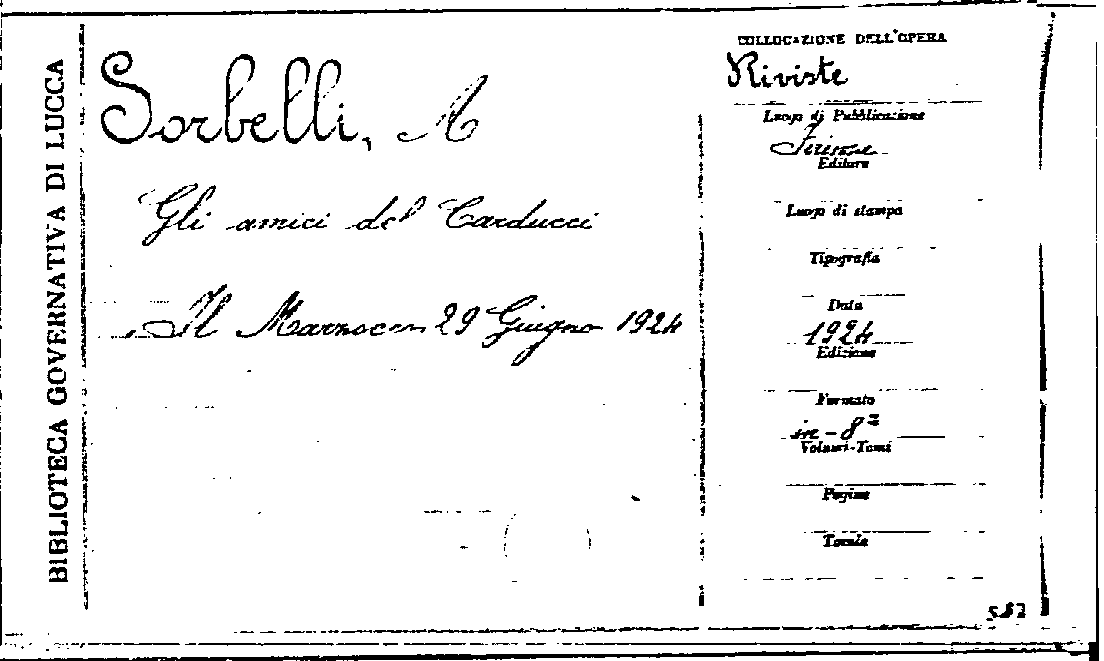 BIBLIOTECA GOVERNATIVA DI LUCCA
Sorbelli, A
Gli amici del Carducci
Il Marzocco 29 Giugno 1924
COLLOCAZIONE DELL'OPERA
Riviste
Luogo di Pubblicazione
Firenze
Editore
Luogo di stampa
Tipografia
Data
1924
Edizione
Formato
in-8º
Volumi-Tomi
Pagine
Tavole